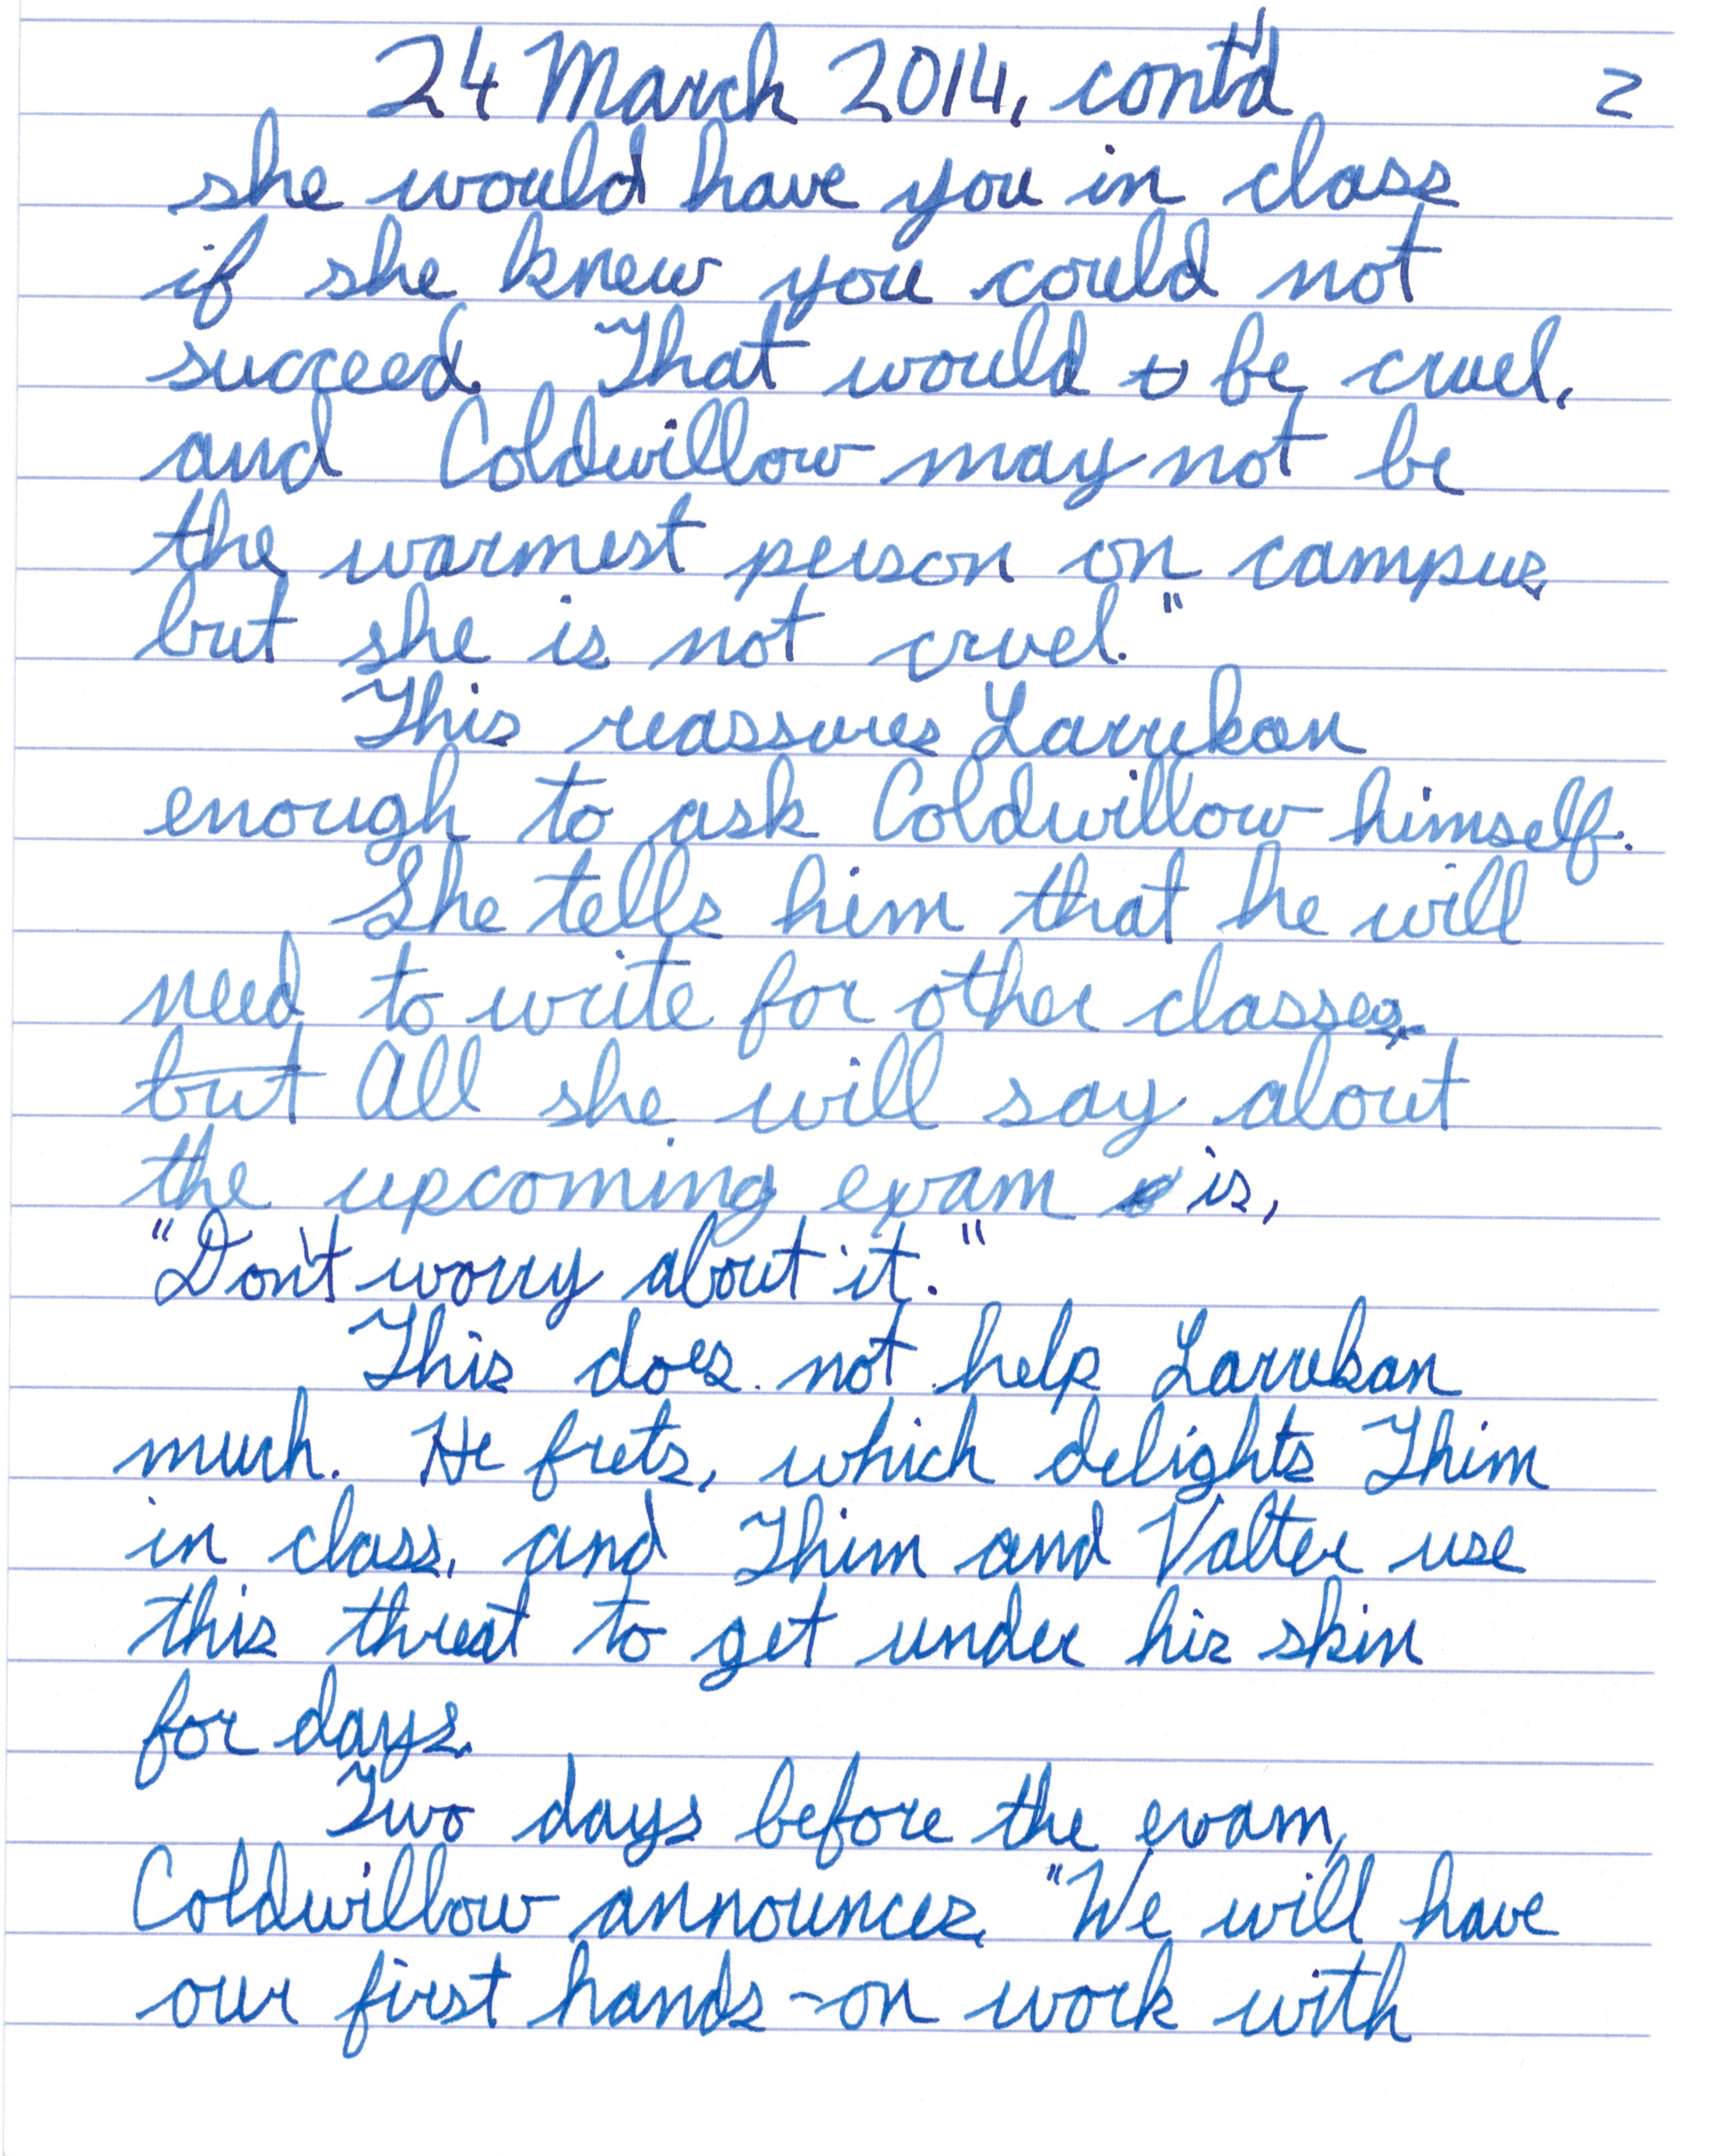 24 March 2014, cont'd 2
she would have you in class
if she knew you could not
succeed. That would be cruel,
and Coldwillow may not be
the warmest person on campus,
but she is not cruel."
This reassures Larrekan
enough to ask Coldwillow himself.
She tells him that he will
need to write for other classes.
but All she will say about
the upcoming exam is,
"Don't worry about it."
This does not help Larrekan
much. He frets, which delights Thim
in class, and Thim and Valter use
this threat to get under his skin
for days.
Two days before the exam,
Coldwillow announces, "We will have
our first hands-on work with